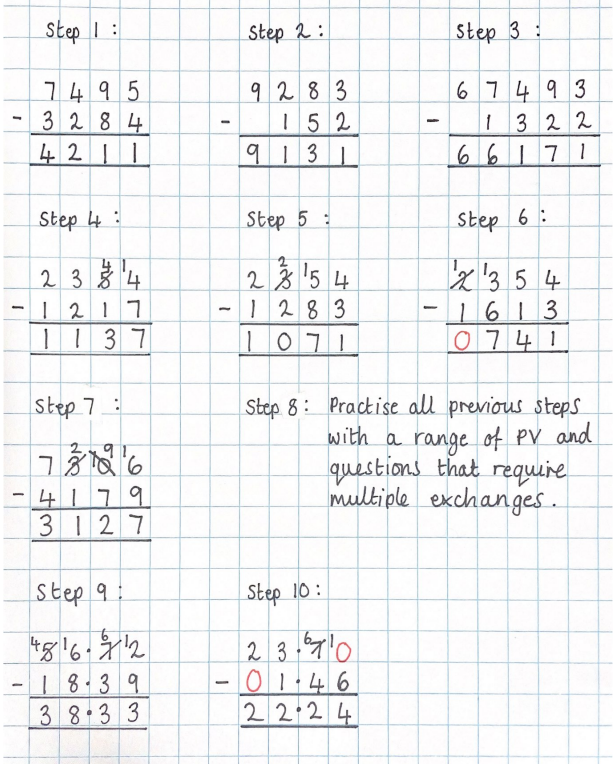 Step 1 :
7 4 9 5
- 3 2 8 4
4 2 1 1
Step 2 :
9 2 8 3
- 1 5 2
9 1 3 1
Step 3 :
6 7 4 9 3
- 1 3 2 2
6 6 1 7 1
Step 4 :
4 1
2 3 5 4
- 1 2 1 7
1 1 3 7
Step 5 :
2 1
2 3 5 4
- 1 2 8 3
1 0 7 1
Step 6 :
1 1
2 3 5 4
- 1 6 1 3
0 7 4 1
Step 7 :
2 9 1
7 3 10 6
- 4 1 7 9
3 1 2 7
Step 8 : Practise all previous steps
with a range of PV and
questions that require
multiple exchanges.
Step 9 :
4 1 6 1
5 6 . 7 2
- 1 8 . 3 9
3 8 . 3 3
Step 10 :
6 1
2 3 . 7 0
- 0 1 . 4 6
2 2 . 2 4